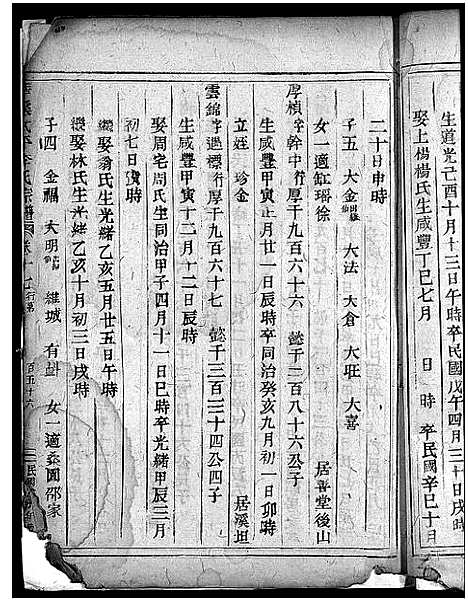 生道光己酉十月十三日午時卒民國戊午四月二十日戌時
娶上楊楊氏生咸豐丁巳七月 日 時 卒民國辛巳十月
二十日申時
子五 大金 大法 大倉 大旺 大喜
女一適缸瑤徐 居普堂後山
厚楨字幹中行厚千九百六十六 懿千二百八十六公子
生咸豐甲寅正月廿一日辰時卒同治癸亥九月初一日卯時
立姪 珍金 居溪坦
雲錦字遜標行厚千九百六十七 懿千三百三十四公四子
生咸豐甲寅十二月十二日辰時
娶周宅周氏生同治甲子四月十一日巳時卒光緒甲辰三月
初七日寅時
繼娶翁氏生光緒乙亥五月廿五日午時
繼娶林氏生光緒乙亥十月初三日戌時
子四 金福 大明 維城 有 女一適桑園邵家
李氏宗譜 卷十七行第 百五十六 民國